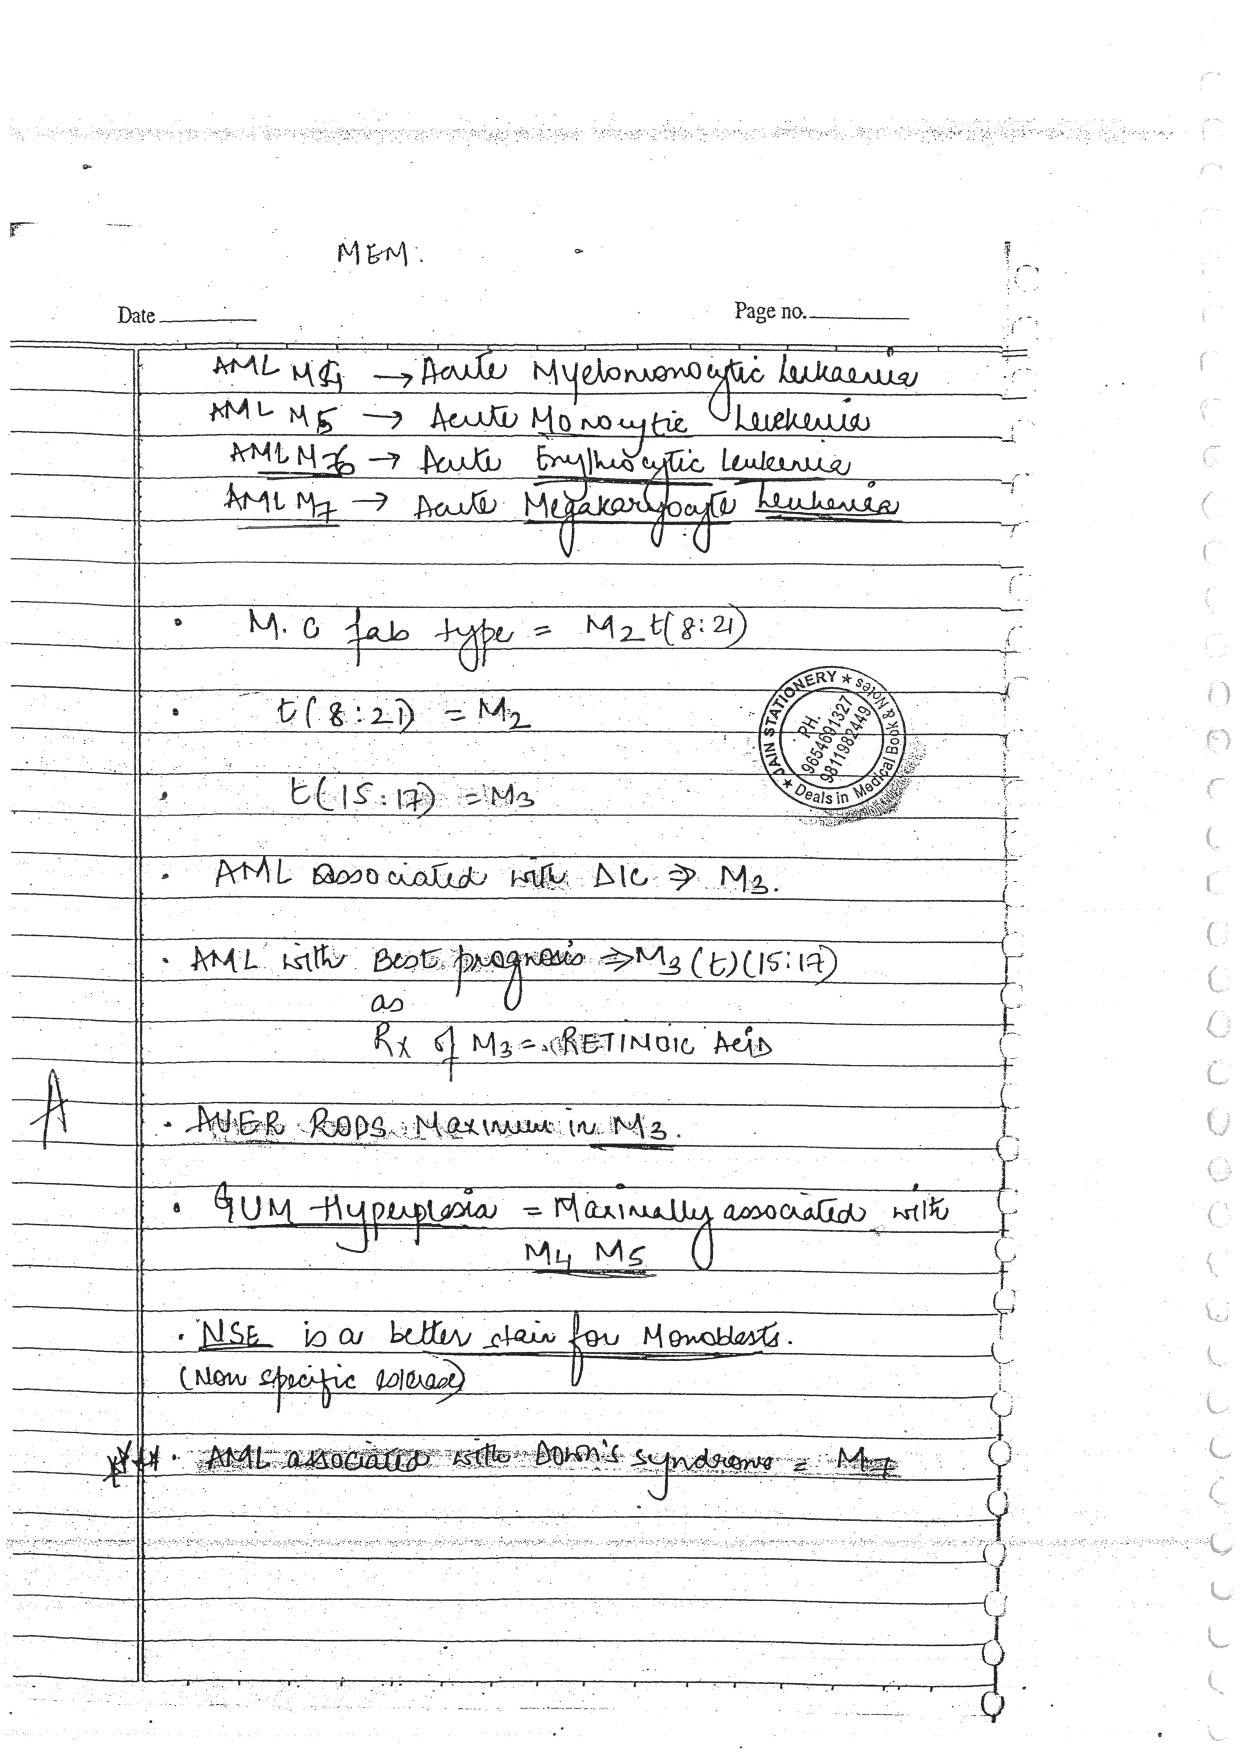 MEM:
Date
Page no.
AML M4 → Acute Myelomonocytic Leukaemia
AML M5 → Acute Monocytic Leukemia
AML M6 → Acute Erythrocytic Leukemia
AML M7 → Acute Megakaryocyte Leukemia
• M.C fab type = M2 t(8:21)
• t(8:21) = M2
JAIN STATIONERY ★ Book & Notes
PH.
9654691327
9811982449
★ Deals in Medical
• t(15:17) = M3
• AML associated with DIC ⇒ M3.
• AML with Best prognosis ⇒ M3 (t)(15:17)
as
Rx of M3 = RETINOIC ACiD
A
• AUER RODS Maximum in M3.
• GUM Hyperplasia = Maximally associated with
M4 M5
• NSE is a better stain for Monoblasts.
(Non specific esterase)
*** • AML associated with Down's syndrome = M7